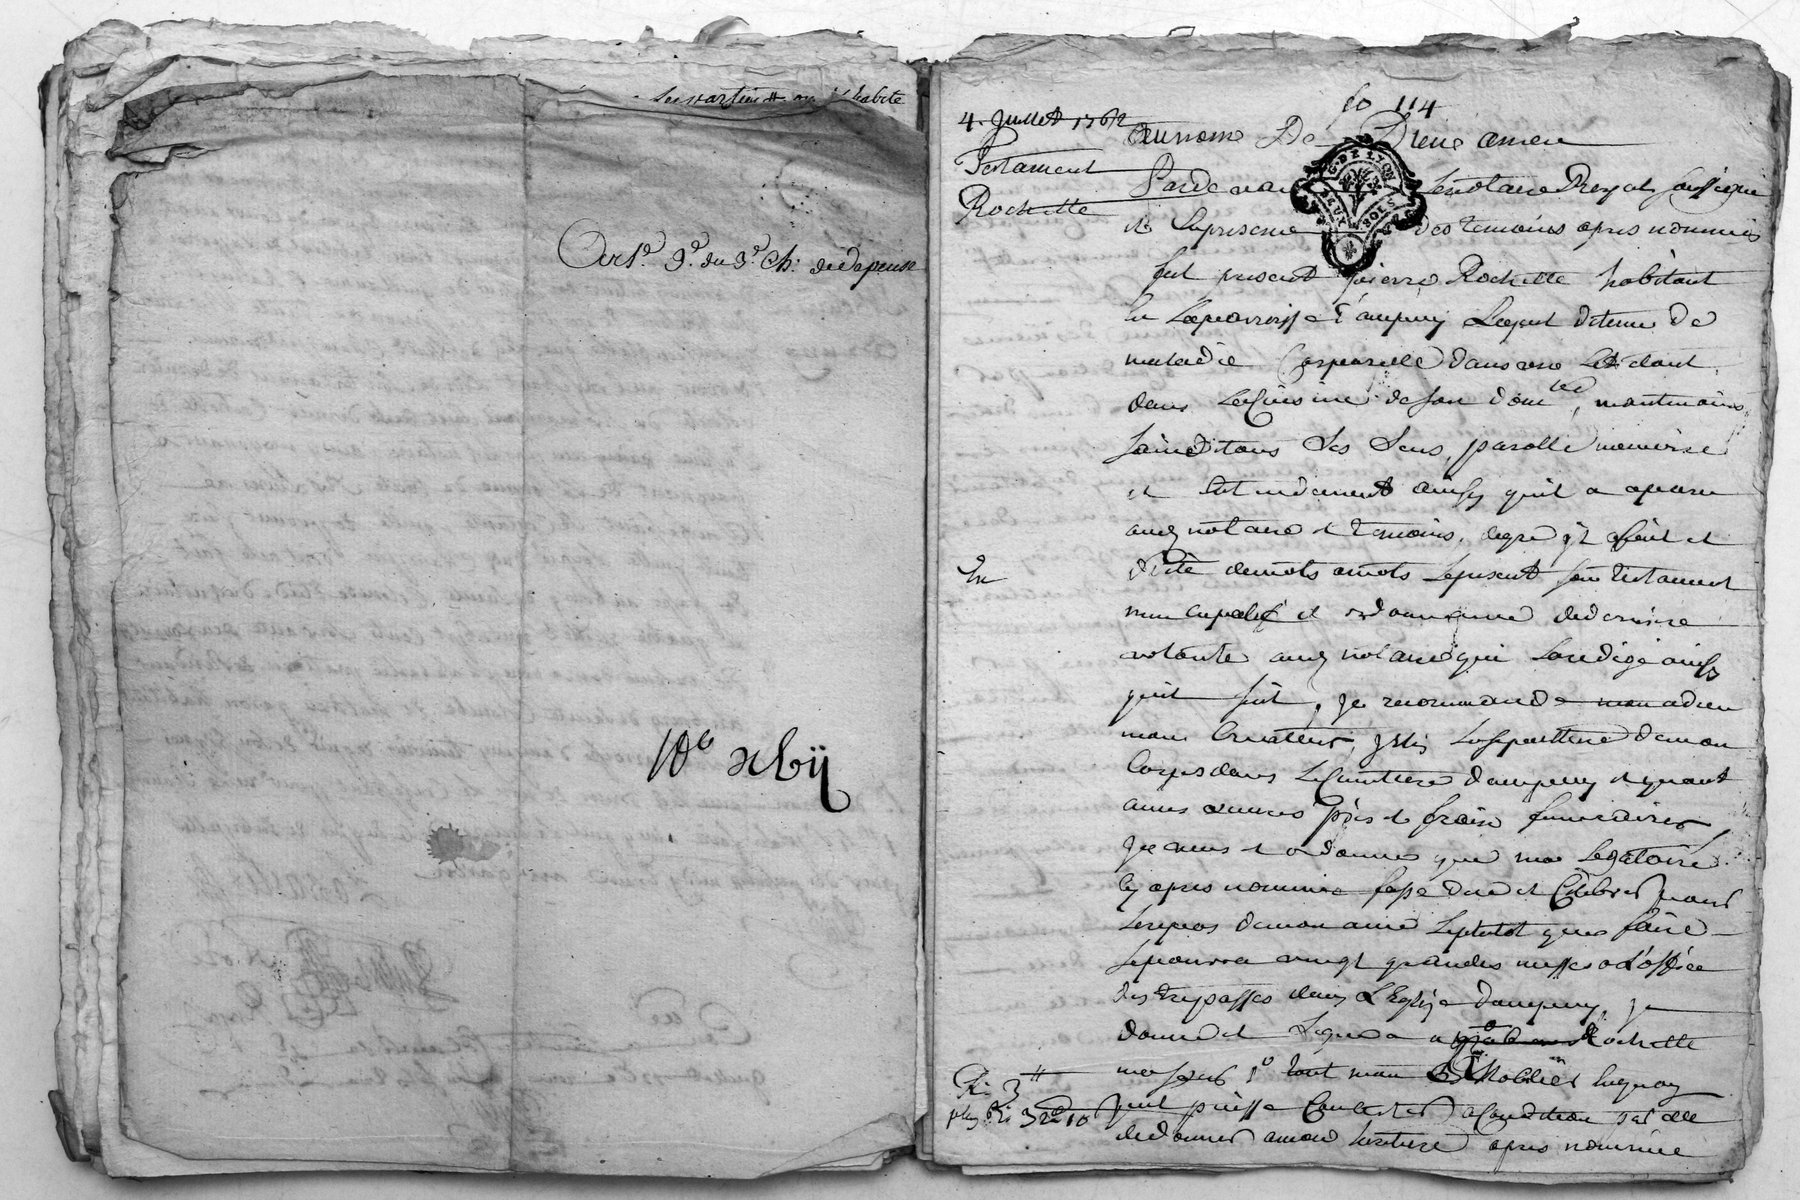 Les parties
habite
Art.e 9.e du 3.e Ch: de depense
xbij
fo 114
4. Juillet 1762
Testament
Rochette
Au nom De Dieu amen
Pardevant le notaire Royal soussigné
et En presence des temoins apres nommés
fut present pierre Rochette habitant
la paroisse d'ampuy Lequel detenu de
maladie Corporelle dans un Lit étant
dans la Cuisine de son dom.lle, neantmoins
sain de tous Ses Sens, parolle memoire
et Entendement ainsy qu'il a aparu
aud notaire et temoins, de gré il a fait et
Dicté de mots a mots Le present son testament
nuncupatif et ordonnance de derniere
volonté aud notaire qui L'a redigé ainsy
qu'il suit, Je recommande mon a dieu
mon Createur, J'élis La sepulture de mon
Corps dans Le Cimetiere d'ampuy et quant
a mes œuvres pies et frais funeraires,
Je veux et ordonne que mon Legatoire
Cy apres nommée fasse dire et Celebrer pour
Le repos de mon ame Le plutot que faire
Se pourra vingt grandes messes a L'office
des trepassés dans L'Eglise d'ampuy, Je
donne et Legue a Rochette
tout mon Mobilier en quoy
qu'il puisse Consister a Condition par elle
de donner a mon heritiere apres nommée
G. DE LYON
DEUX SOLS